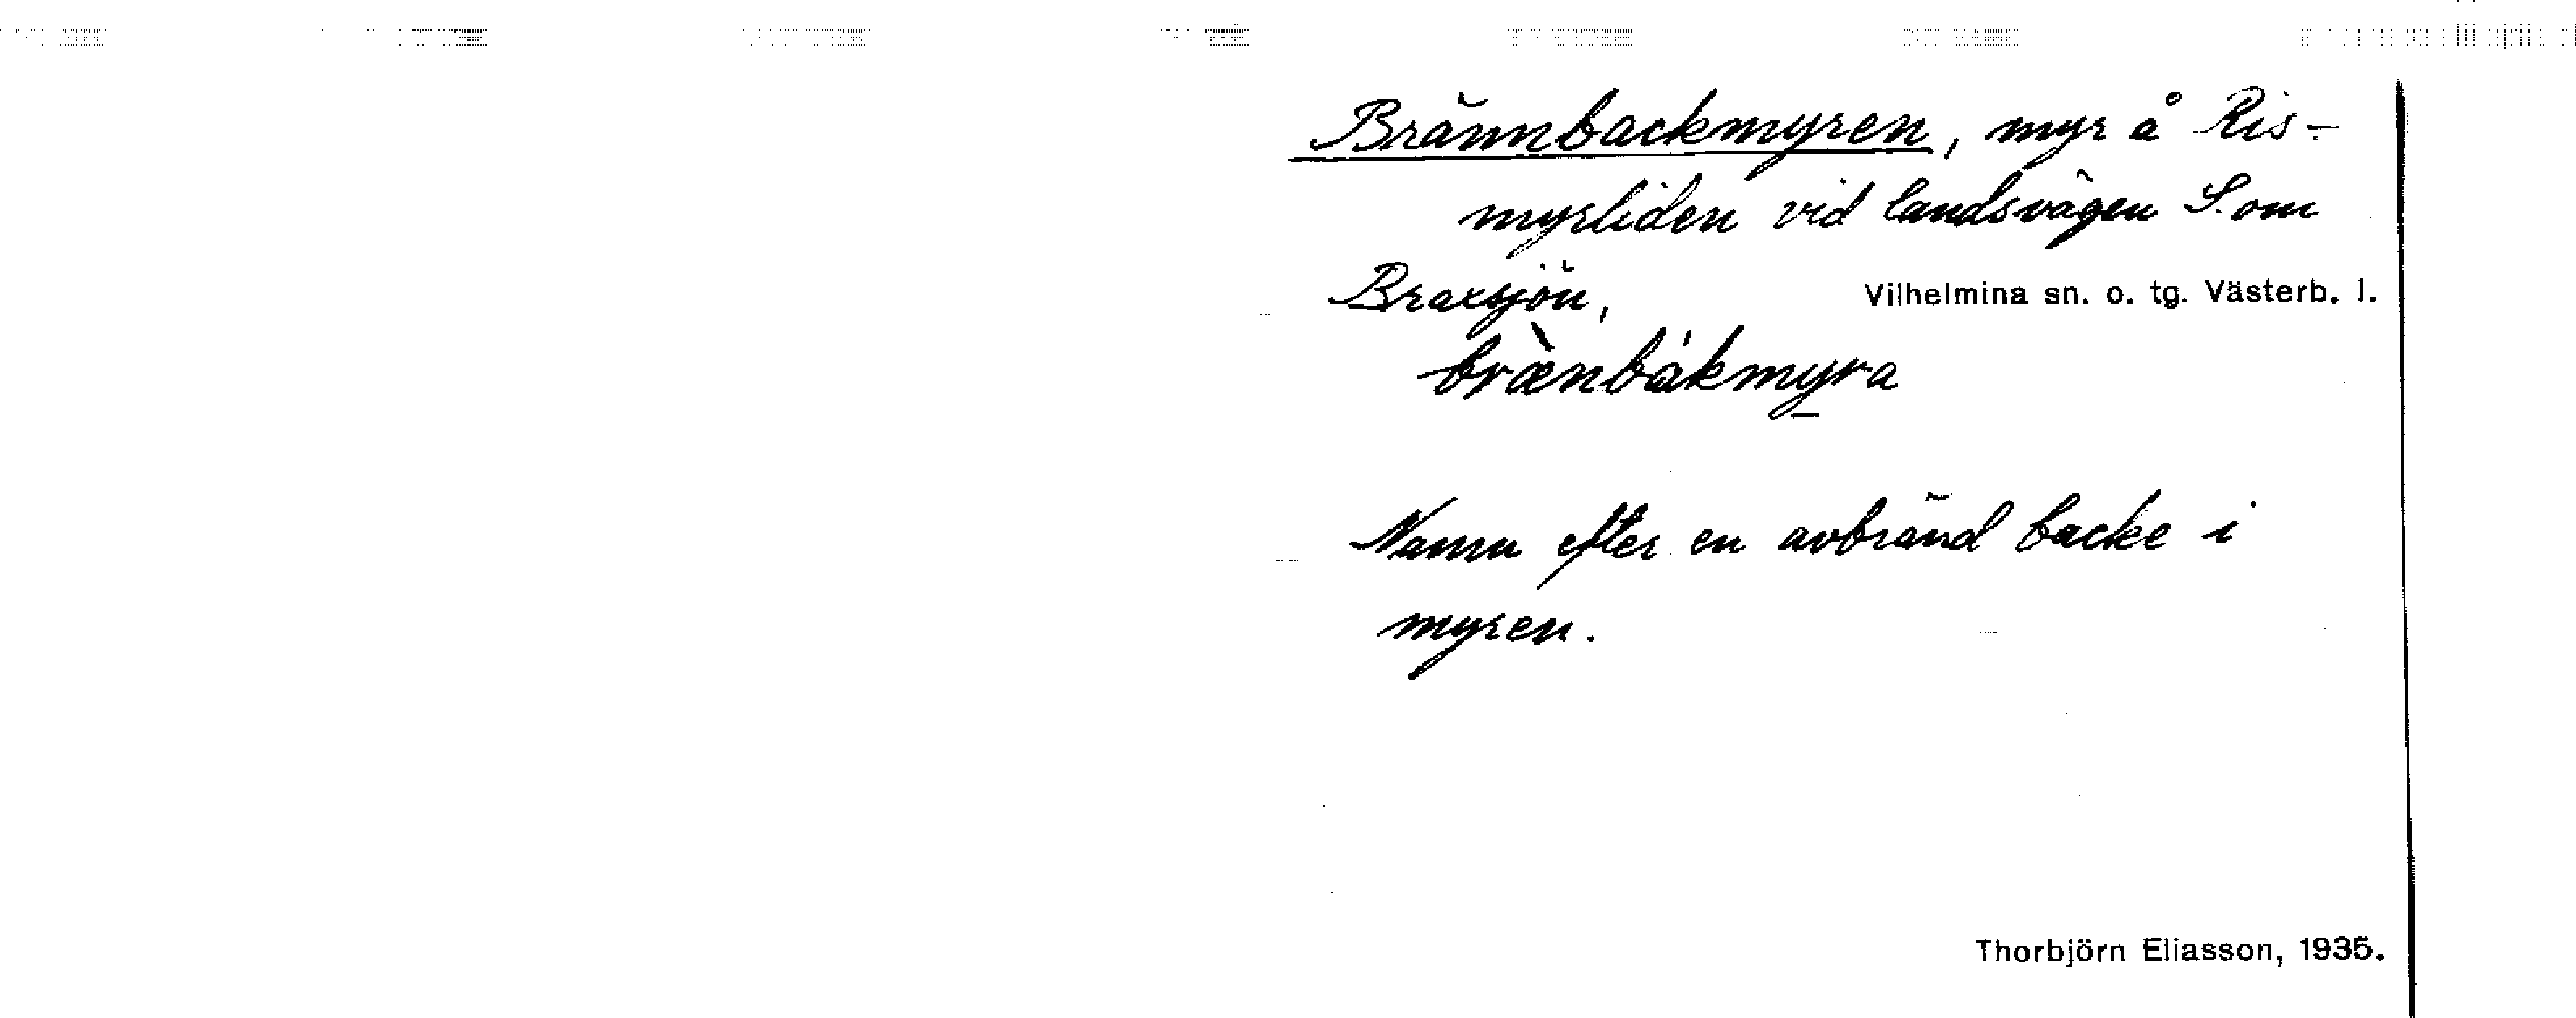 Brännbackmyren, myr å Ris-
myrliden vid landsvägen S. om
Braxsjön, Vilhelmina sn. o. tg. Västerb. l.
bræ̀nbákmyra
Namn efter en avbränd backe i
myren.
Thorbjörn Eliasson, 1935.